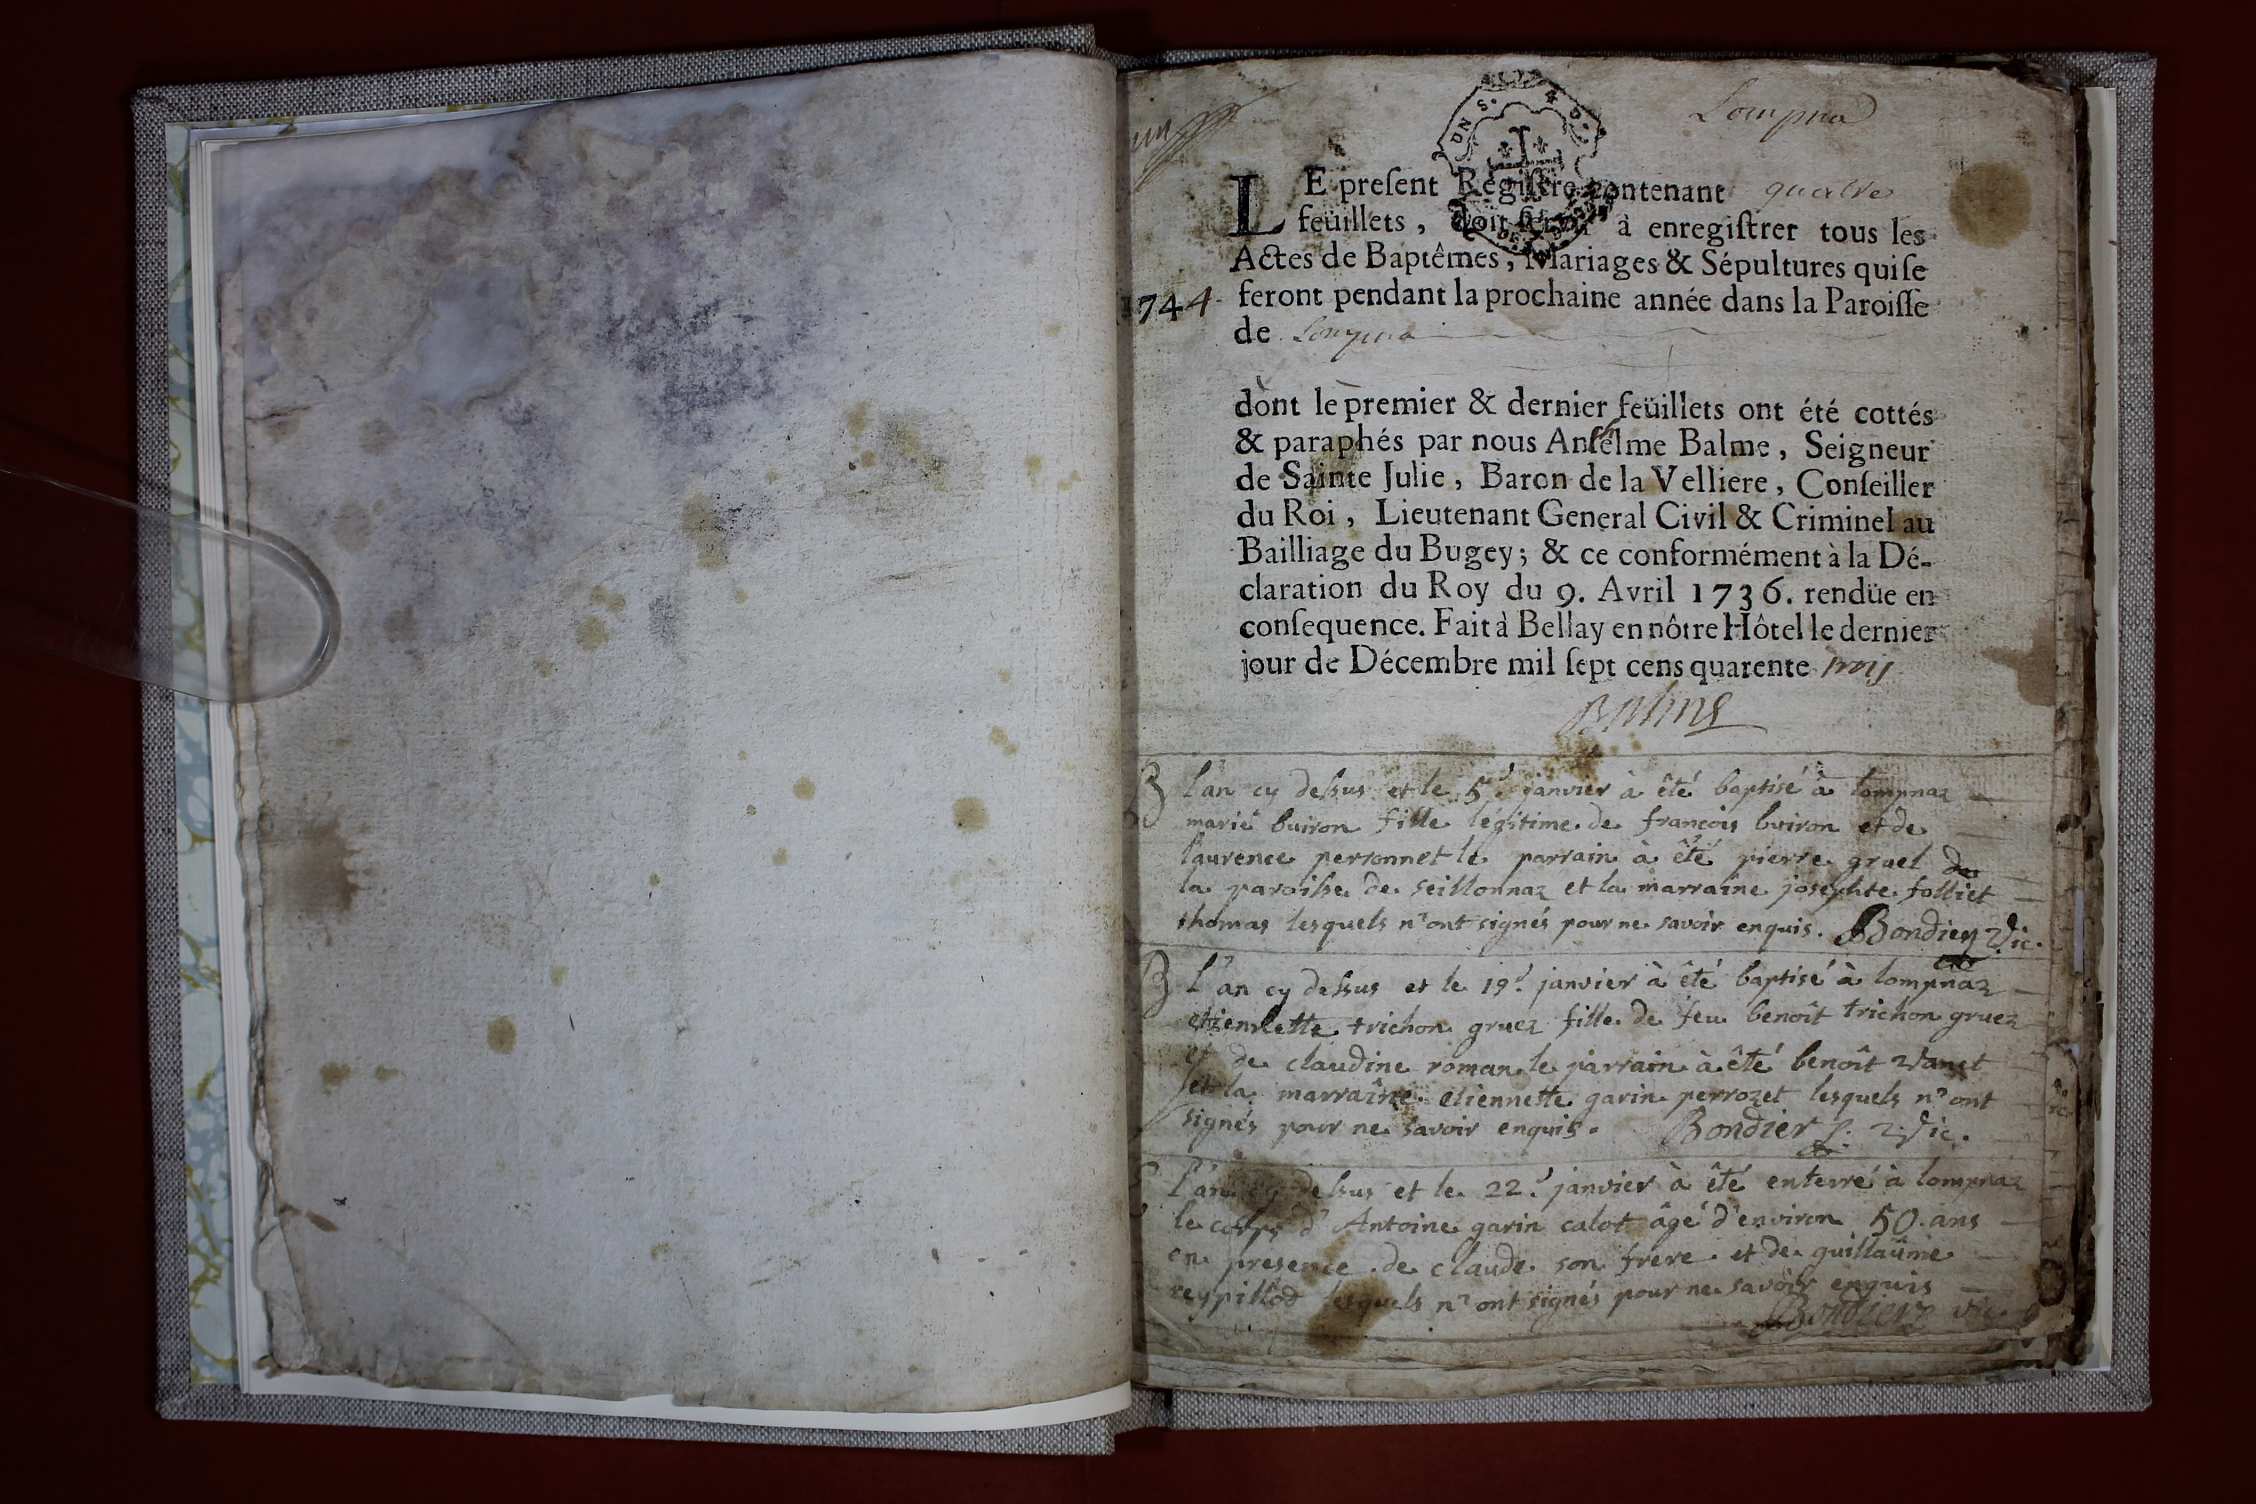 Lompna
LE preſent Regiſtre contenant quattre
feüillets, doit ſervir à enregiſtrer tous les
Actes de Baptêmes, Mariages & Sépultures qui ſe
1744 feront pendant la prochaine année dans la Paroiſſe
de Lompna
dont le premier & dernier feüillets ont été cottés
& paraphés par nous Anſelme Balme, Seigneur
de Sainte Julie, Baron de la Velliere, Conſeiller
du Roi, Lieutenant General Civil & Criminel au
Bailliage du Bugey; & ce conformément à la Dé-
claration du Roy du 9. Avril 1736. rendüe en
conſequence. Fait à Bellay en nôtre Hôtel le dernier
jour de Décembre mil ſept cens quarente trois
Balme
B l'an cy dessus et le 5e janvier à êté baptisé à lompnaz
marie buiron fille légitime de francois buiron et de
laurence personnet le parrain à êté pierre gruel de
la paroisse de seillonnaz et la marraine josephte folliet
thomas lesquels n'ont signés pour ne savoir enquis. Bondier Vic.
B L'an cy dessus et le 19e janvier à êté baptisé à lompnaz
etiennette trichon gruez fille de feu benoît trichon gruez
et de claudine roman le parrain à êté benoît Vanet
et la marraîne etiennette garin perrozet lesquels n'ont
signés pour ne savoir enquis. Bondier Vic.
S L'an cy dessus et le 22e janvier à êté enterré à lompnaz
le corps d'Antoine garin calot âgé d'environ 50 ans
en presence de claude son frere et de guillaûme
reypillod lesquels n'ont signés pour ne savoir enquis
Bondier vic.